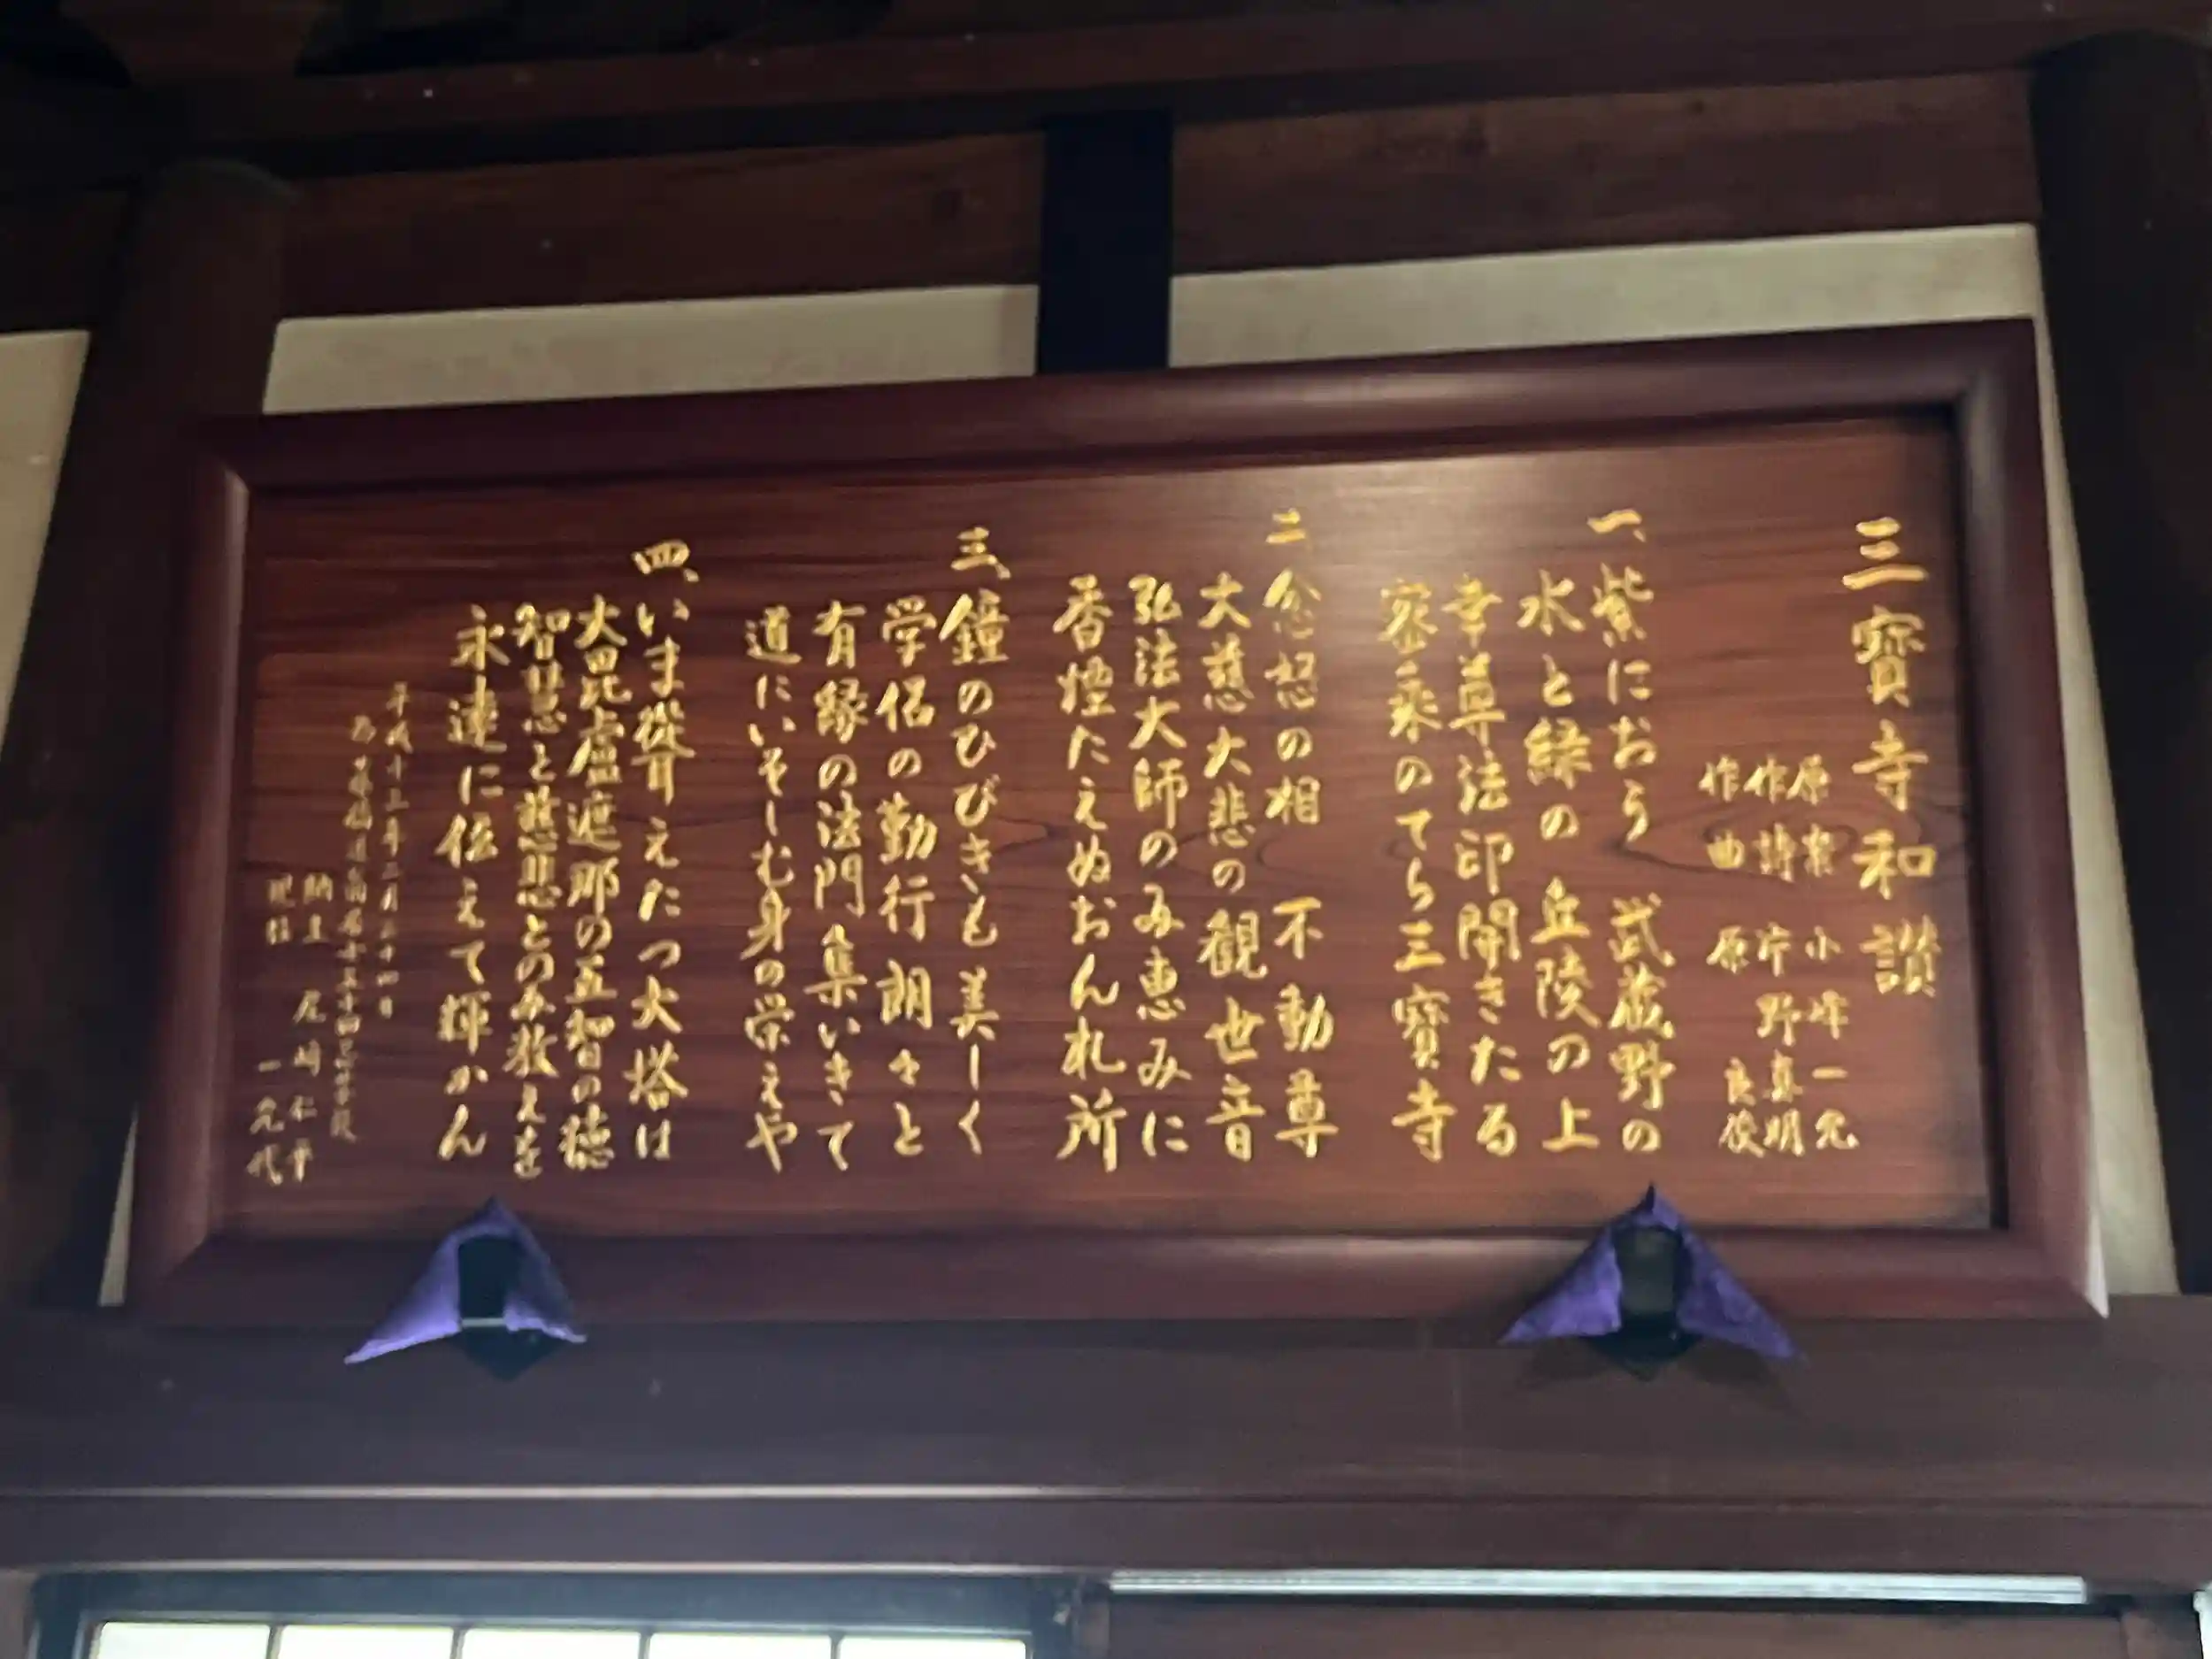 三寳寺和讃
原案 小峰一允
作詩 片野真明
作曲 原 良俊
一、紫におう 武蔵野の
水と緑の 丘陵の上
幸尊法印開きたる
密乗のてら三寳寺
二、忿怒の相 不動尊
大慈大悲の観世音
弘法大師のみ恵みに
香煙たえぬおん札所
三、鐘のひびきも美しく
学侶の勤行朗々と
有縁の法門集いきて
道にいそしむ身の栄えや
四、いま聳えたつ大塔は
大毘盧遮那の五智の徳
智慧と慈悲とのみ教えを
永遠に伝えて輝かん
平成十三年三月二十四日
納主 尾崎仁平
現住 一允代